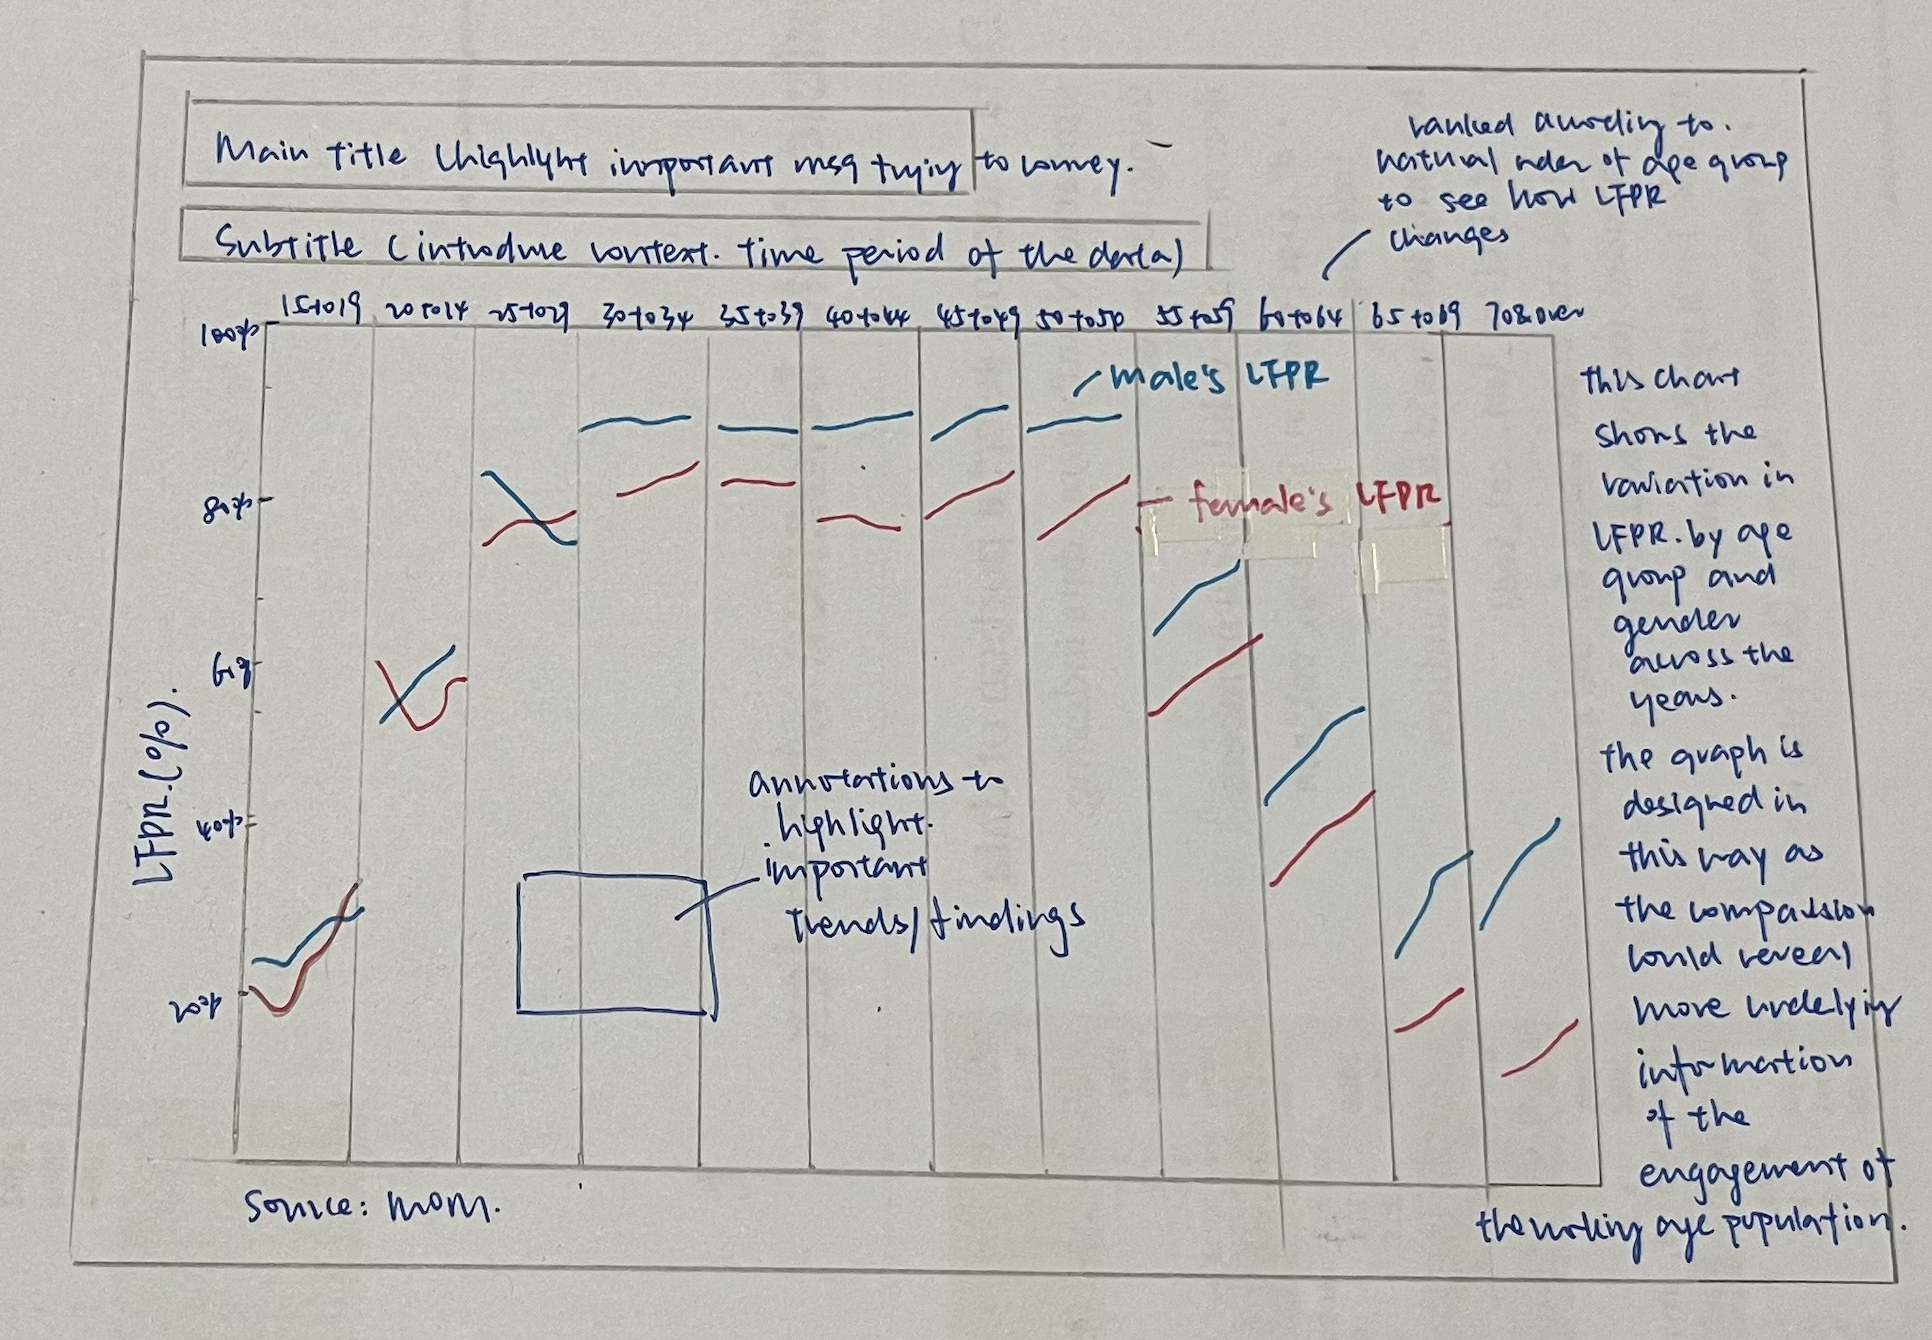 Main title (highlight important msg trying to convey.
Subtitle (introduce context. time period of the data)
ranked according to.
natural order of age group
to see how LFPR
changes
15to19 20to24 25to29 30to34 35to39 40to44 45to49 50to54 55to59 60to64 65to69 70&over
100%
80%
60%
40%
20%
LFPR.(%).
male's LFPR
female's LFPR
annotations to
highlight.
important
trends/findings
this chart
shows the
variation in
LFPR. by age
group and
gender
across the
years.
the graph is
designed in
this way as
the comparison
could reveal
more underlying
information
of the
engagement of
the working age population.
Source: MOM.